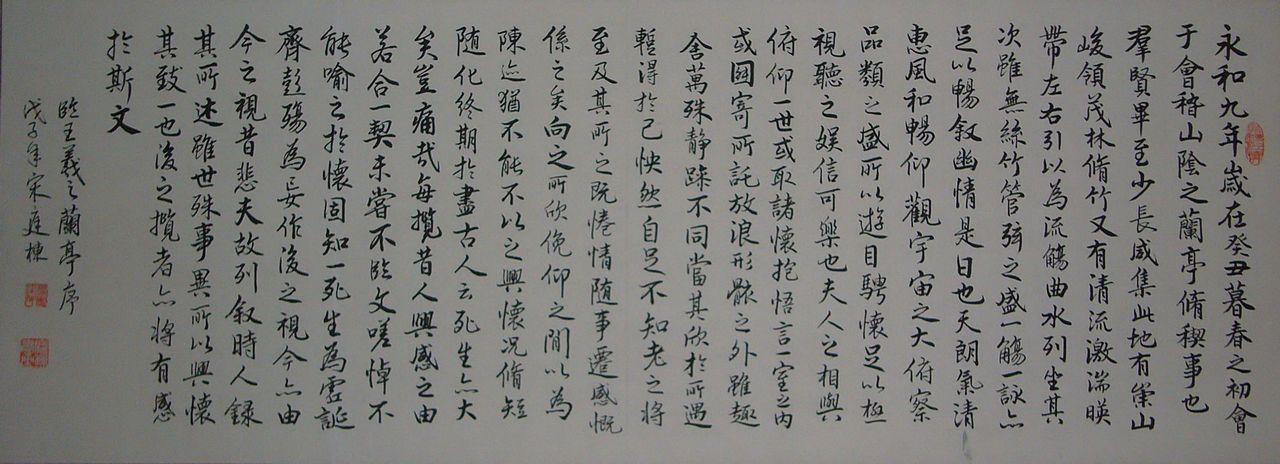 永和九年歲在癸丑暮春之初會
于會稽山陰之蘭亭脩稧事也
羣賢畢至少長咸集此地有崇山
峻領茂林脩竹又有清流激湍暎
帶左右引以為流觴曲水列坐其
次雖無絲竹管弦之盛一觴一詠亦
足以暢叙幽情是日也天朗氣清
惠風和暢仰觀宇宙之大俯察
品類之盛所以遊目騁懷足以極
視聽之娛信可樂也夫人之相與
俯仰一世或取諸懷抱悟言一室之內
或因寄所託放浪形骸之外雖趣
舍萬殊静躁不同當其欣於所遇
暫得於己怏然自足不知老之將
至及其所之既惓情随事遷感慨
係之矣向之所欣俛仰之間以為
陳迹猶不能不以之興懷況脩短
随化終期於盡古人云死生亦大
矣豈痛哉每攬昔人興感之由
若合一契未嘗不臨文嗟悼不
能喻之於懷固知一死生為虛誕
齊彭殤為妄作後之視今亦由
今之視昔悲夫故列叙時人錄
其所述雖世殊事異所以興懷
其致一也後之攬者亦將有感
於斯文
臨王羲之蘭亭序
戊子年宋廷棟